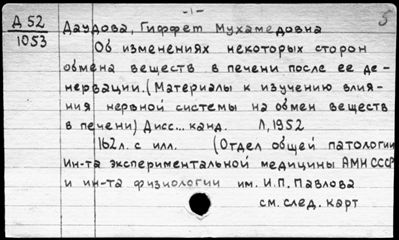 -1-
5
Д 52
1053
Даудова, Гиффет Мухамедовна
Об изменениях некоторых сторон
обмена веществ в печени после ее де-
нервации. (Материалы к изучению влия-
ния нервной системы на обмен веществ
в печени) Дисс... канд. Л, 1952
162 л. с илл. (Отдел общей патологии
Ин-та экспериментальной медицины АМН СССР
и ин-та физиологии им. И.П. Павлова
см. след. карт